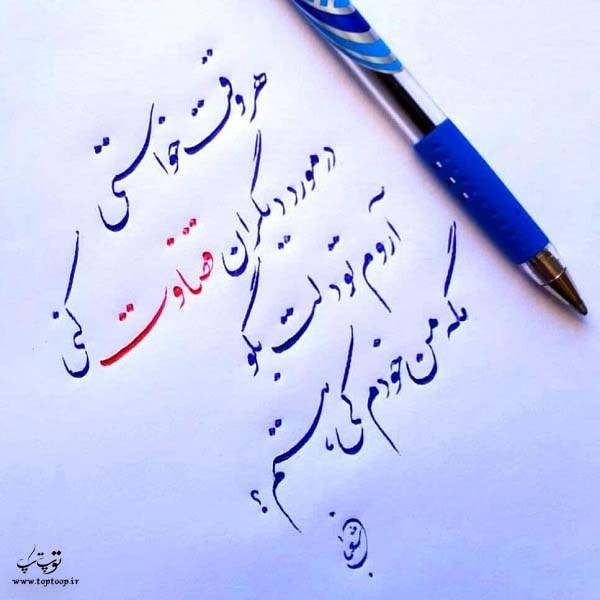 هر وقت خواستی
در مورد دیگران قضاوت کنی
آروم تو دلت بگو
مگه من خودم کی هستم؟
توپ تاپ
www.toptoop.ir